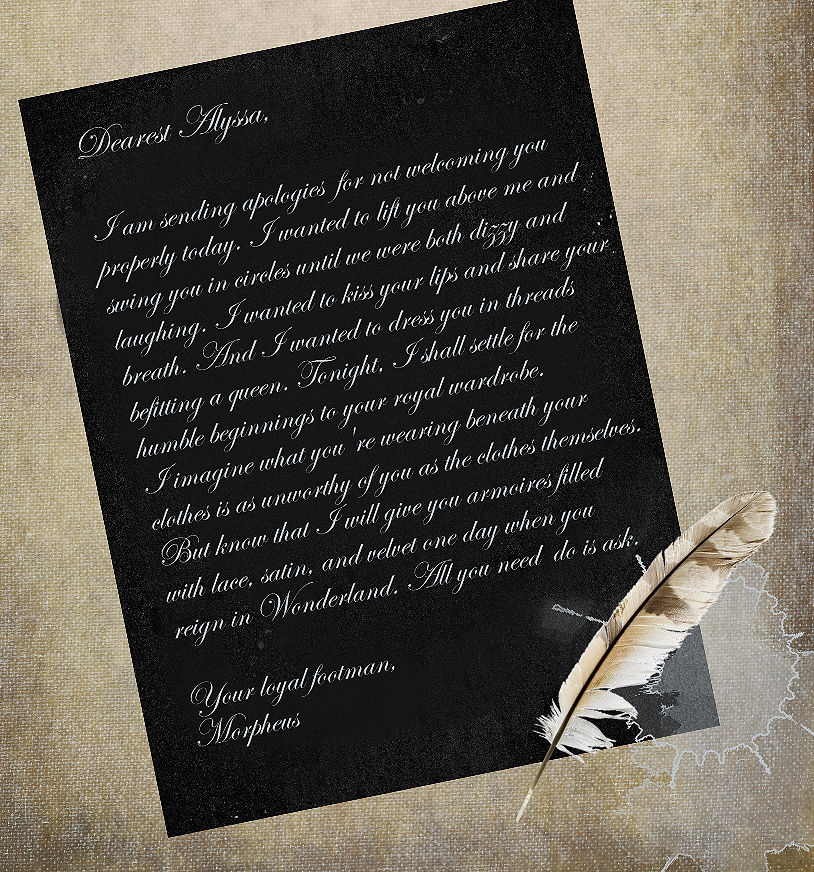 Dearest Alyssa,
I am sending apologies for not welcoming you
properly today. I wanted to lift you above me and
swing you in circles until we were both dizzy and
laughing. I wanted to kiss your lips and share your
breath. And I wanted to dress you in threads
befitting a queen. Tonight, I shall settle for the
humble beginnings to your royal wardrobe.
I imagine what you're wearing beneath your
clothes is as unworthy of you as the clothes themselves.
But know that I will give you armoires filled
with lace, satin, and velvet one day when you
reign in Wonderland. All you need do is ask.
Your loyal footman,
Morpheus